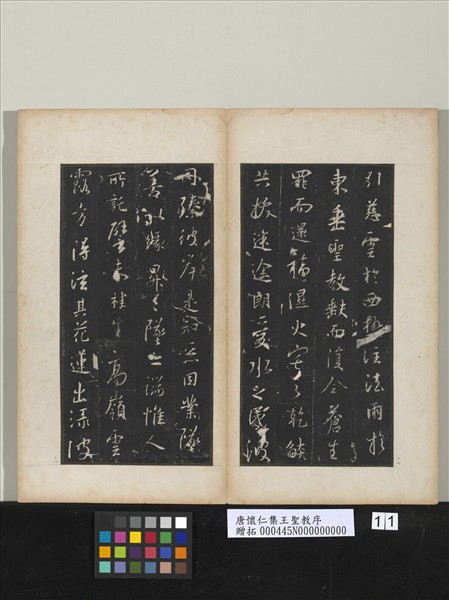 引慈雲於西極注法雨於
東垂聖教缺而復全蒼生
罪而還福濕火宅之乾焰
共拔迷途朗愛水之昏波
同臻彼岸是知惡因業墜
善以緣昇々墜之端惟人
所託譬夫桂生高嶺雲
露方得泫其花蓮出淥波
唐懷仁集王聖教序
贈拓 000445N000000000
11